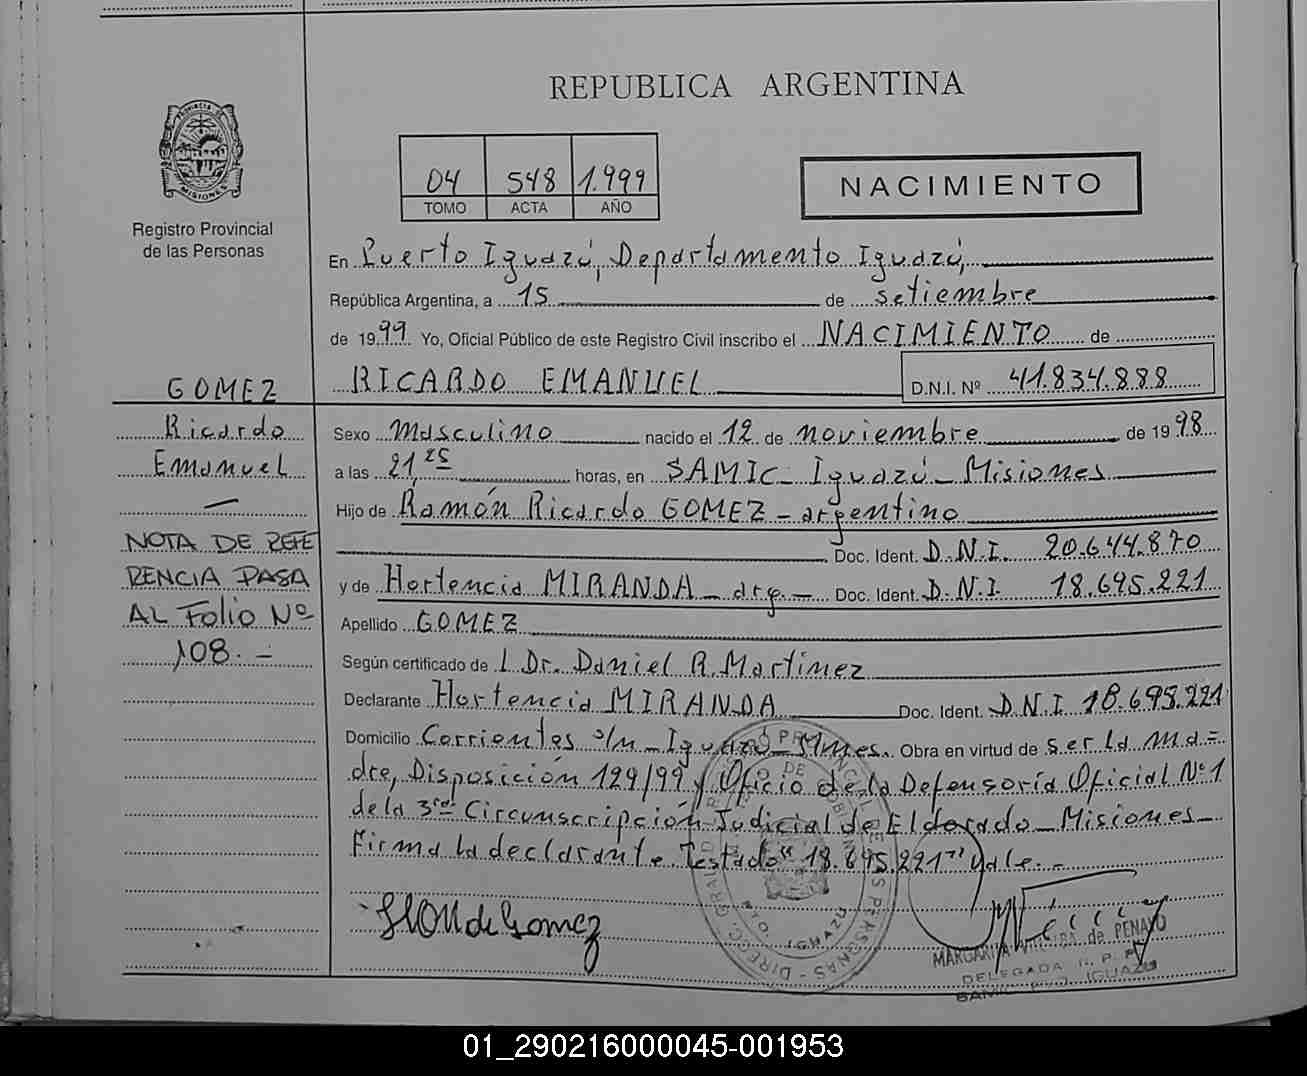 REPUBLICA ARGENTINA
PROVINCIA DE
MISIONES
Registro Provincial
de las Personas
04 548 1.999
TOMO ACTA AÑO
NACIMIENTO
En Puerto Iguazú, Departamento Iguazú,
República Argentina, a 15 de setiembre
de 1999 Yo, Oficial Público de este Registro Civil inscribo el NACIMIENTO de
RICARDO EMANUEL D.N.I. Nº 41.834.888
GOMEZ
Ricardo
Emanuel
NOTA DE REFE
RENCIA PASA
AL FOLIO Nº
108.-
Sexo Masculino nacido el 12 de noviembre de 1998
a las 21,25 horas, en SAMIC- Iguazú - Misiones
Hijo de Ramón Ricardo GOMEZ - argentino
Doc. Ident. D.N.I. 20.644.870
y de Hortencia MIRANDA - arg.- Doc. Ident. D.N.I 18.695.221
Apellido GOMEZ
Según certificado de l Dr. Daniel R. Martinez
Declarante Hortencia MIRANDA Doc. Ident. D.N.I 18.695.221
Domicilio Corrientes s/n - Iguazú - Mnes. Obra en virtud de ser la ma=
dre, Disposición 129/99 y Oficio de la Defensoría Oficial Nº 1
de la 3ra Circunscripción Judicial de Eldorado - Misiones -
Firma la declarante. Testado "18.695.221" vale.-
de Gomez
MARGARITA de PENAYO
DELEGADA R. P. P.
SAMIC PTO. IGUAZU
01_290216000045-001953